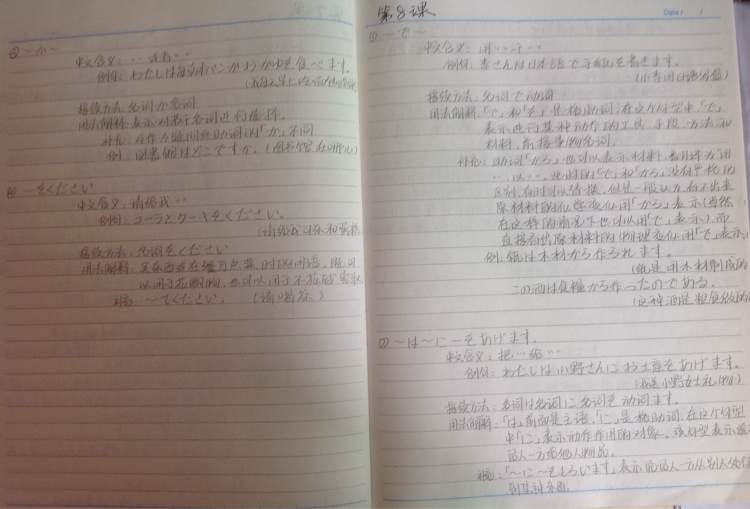 ③ ～か～
中文含义:…或者…
例句:わたしは毎朝パンかおかゆを食べます。
接续方法:名词か名词
用法解释:表示对若干名词进行选择。
补充:与作为疑问终助词的「か」不同
例:図書館はどこですか。(图书馆在哪儿)
④ ～をください
中文含义:请给我…
例句:コーラとケーキをください。
(请给我可乐和蛋糕
接续方法:名词をください
用法解释:买东西或在餐厅点菜时的用语,既可
以用于
～てください。
第8课
Date:
① ～で～
中文含义:用…
例句:李さんは日本語で手紙を書きます。
(小李用日语写信)
接续方法:名词で动词
用法解释:「で」和「を」是格助词,在这个句型中,「で」
表示进行某种动作的工具、手段、方法和
材料,前接事物名词。
补充:助词「から」也可以表示材料,翻译为“用
…以…”,此时的「で」和「から」没有严格的
区别,有时可以替换,但是一般认为看不出来
原材料的化学变化用「から」表示(当然
在这样的情况下也可以用「で」表示),而
直接看出原材料的物理变化用「で」表示
例:紙は木材から作られます。
(纸是用木材制成的
この酒は食糧から作ったのである。
(这种酒是粮食做的
② ～は～に～をあげます。
中文含义:把…给…
例句:わたしは小野さんにお土産をあげます。
(我送小野女士礼物)
接续方法:名词は名词に名词を动词ます。
用法解释:「は」前面是主语,「に」是格助词,在这个句型
中「に」表示动作作用的对象。该句型表示
说人一方给他人物品。
补充:「～に～をもらいます」表示说话人一方从别人处
得到某种东西。